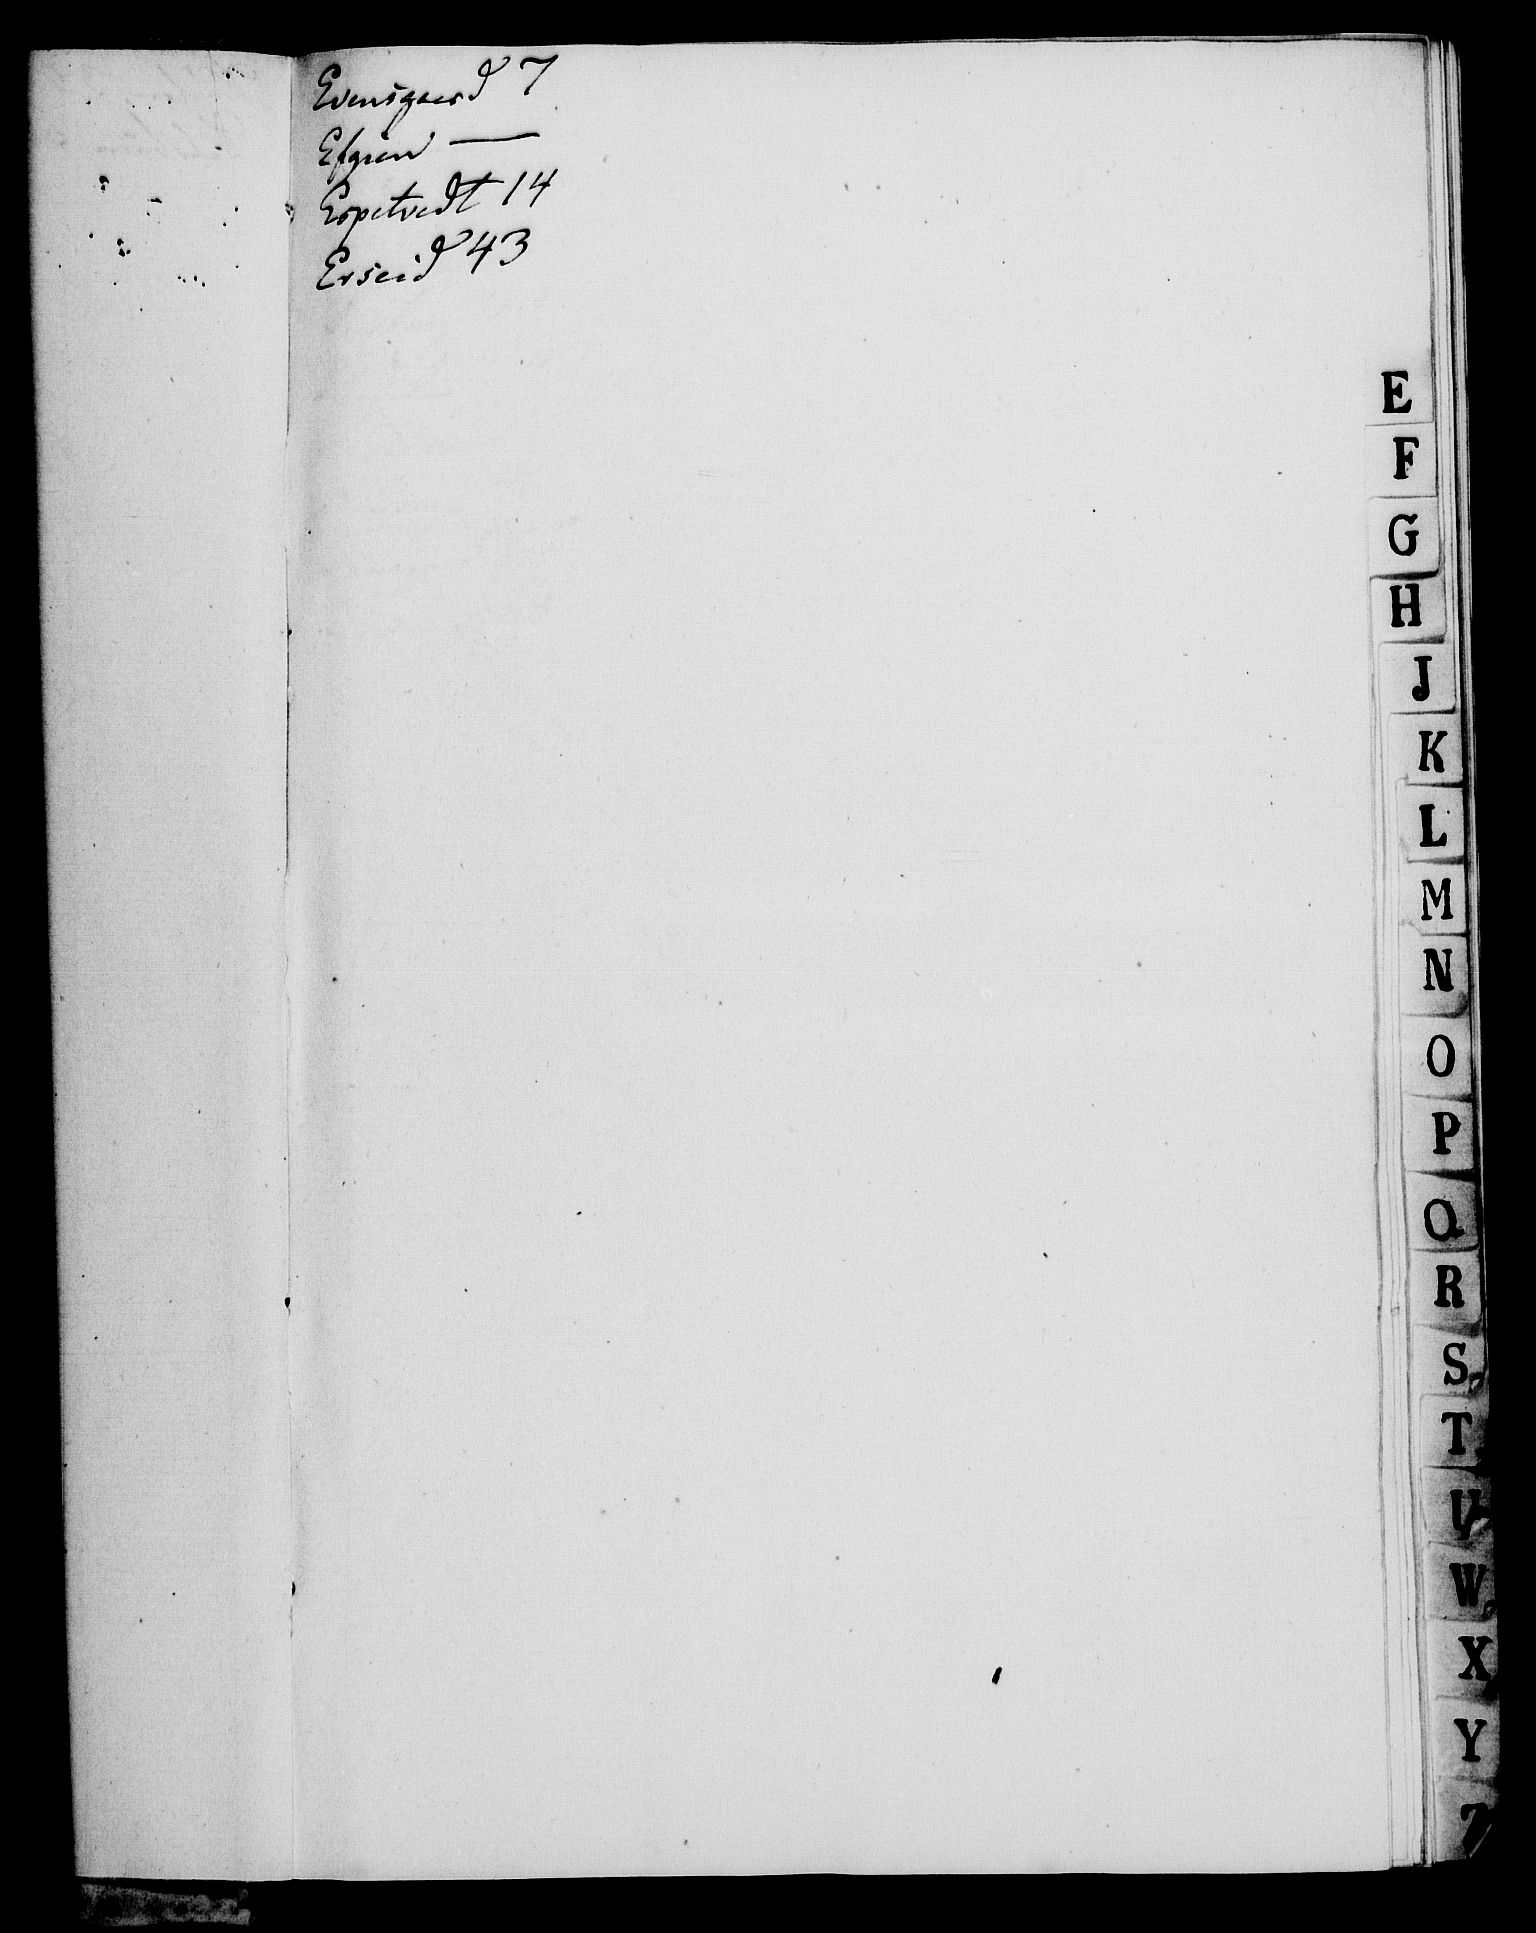 Evensgaard 7
Efgien —
Espetvedt 14
Erseid 43
E
F
G
H
J
K
L
M
N
O
P
Q
R
S
T
U
W
X
Y
Z